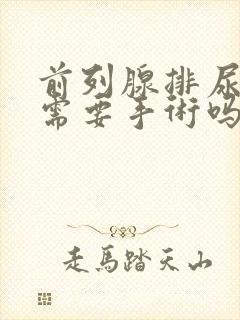 前列腺排尿
需要手術吗
走馬踏天山